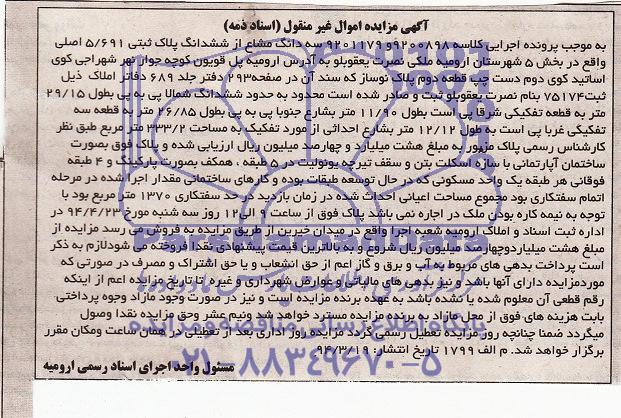 آگهی مزایده اموال غیر منقول (اسناد ذمه)
به موجب پرونده اجرایی کلاسه ۹۲۰۰۸۹۸ و ۹۲۰۱۱۷۹ سه دانگ مشاع از ششدانگ پلاک ثبتی ۵/۶۹۱ اصلی
واقع در بخش ۵ شهرستان ارومیه ملکی نصرت یعقوبلو به آدرس ارومیه پل قویون کوچه جوار نهر شهراجی کوی
اساتید کوی دوم دست چپ قطعه دوم پلاک نوساز که سند آن در صفحه ۹۳ دفتر جلد ۶۸۹ دفاتر املاک ذیل
ثبت ۷۵۱۷۴ بنام نصرت یعقوبلو ثبت و صادر شده است محدود به حدود ششدانگ شمالا پی به پی بطول ۲۹/۱۵
متر به قطعه تفکیکی شرقا پی است بطول ۱۱/۹۰ متر بشارع جنوبا پی به پی بطول ۲۶/۸۵ متر به قطعه سه
تفکیکی غربا پی است به طول ۱۲/۱۲ متر بشارع احداثی از مورد تفکیک به مساحت ۳۳۳/۲ متر مربع طبق نظر
کارشناس رسمی پلاک مزبور به مبلغ هشت میلیارد و چهارصد میلیون ریال ارزیابی شده و پلاک فوق بصورت
ساختمان آپارتمانی با سازه اسکلت بتن و سقف تیرچه یونولیت در ۵ طبقه، همکف بصورت پارکینگ و ۴ طبقه
فوقانی هر طبقه یک واحد مسکونی که در حال توسعه طبقات بوده و کارهای ساختمانی مقدار اجرا شده در مرحله
اتمام سفتکاری بود مجموع مساحت اعیانی احداث شده در زمان بازدید در حد سفتکاری ۱۳۷۰ متر مربع بود با
توجه به نیمه کاره بودن ملک در اجاره نمی باشد پلاک فوق از ساعت ۹ الی ۱۲ روز سه شنبه مورخ ۹۴/۴/۲۳ در
اداره ثبت اسناد و املاک ارومیه شعبه اجرا واقع در میدان خیرین از طریق مزایده به فروش می رسد مزایده از
مبلغ هشت میلیارد و چهارصد میلیون ریال شروع و به بالاترین قیمت پیشنهادی نقدا فروخته می شود لازم به ذکر
است پرداخت بدهی های مربوط به آب و برق و گاز اعم از حق انشعاب و یا حق اشتراک و مصرف در صورتی که
مورد مزایده دارای آنها باشد و نیز بدهی های مالیاتی و عوارض شهرداری و غیره تا تاریخ مزایده اعم از اینکه
رقم قطعی آن معلوم شده یا نشده باشد به عهده برنده مزایده است و نیز در صورت وجود مازاد وجوه پرداختی
بابت هزینه های فوق از محل مازاد به برنده مزایده مسترد خواهد شد ونیم عشر وحق مزایده نقدا وصول
میگردد ضمنا چنانچه روز مزایده تعطیل رسمی گردد مزایده روز اداری بعد از تعطیلی در همان ساعت ومکان مقرر
برگزار خواهد شد. م الف ۱۷۹۹ تاریخ انتشار: ۹۴/۳/۱۹
مسئول واحد اجرای اسناد رسمی ارومیه
پایگاه اطلاع رسانی مناقصه و مزایده
۰۲۱-۸۸۳۴۹۶۷۰-۵